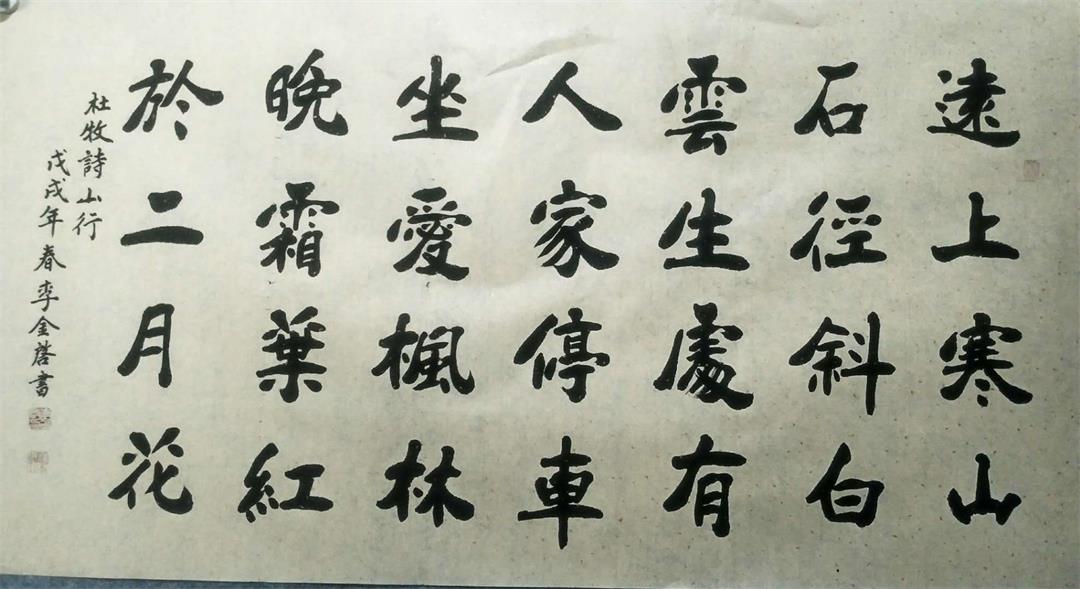 遠上寒山
石徑斜白
雲生處有
人家停車
坐愛楓林
晚霜葉紅
於二月花
杜牧詩山行
戊戌年春李金啓書